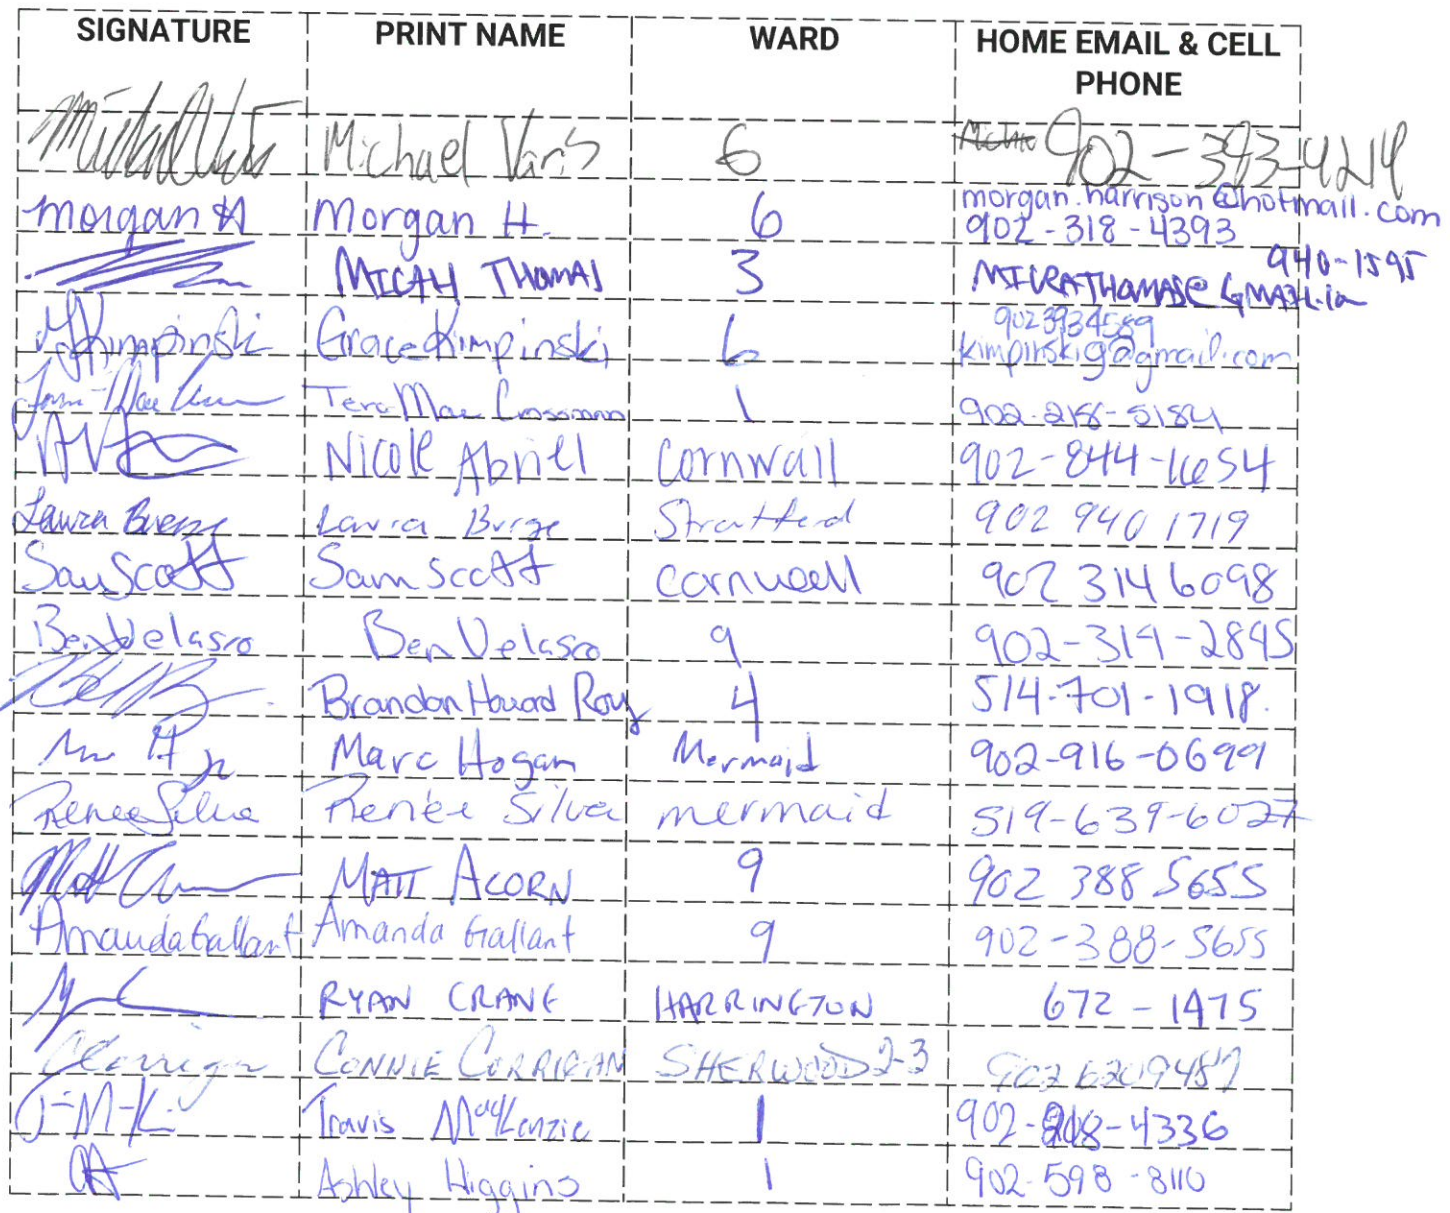 SIGNATURE PRINT NAME WARD HOME EMAIL & CELL
PHONE
Michael Varis 6 902-393-4214
morgan H Morgan H. 6 morgan.harrison@hotmail.com
902-318-4393
940-1595
MICAH THOMAS 3
9023934589
GKimpinski Grace Kimpinski 6 kimpinskig@gmail.com
Tara-Mae Crossman 1 902-218-5184
Nicole Abriel Cornwall 902-844-1654
Laura Burge Laura Burge Stratford 902 940 1719
Sam Scott Sam Scott Cornwall 902 314 6098
Ben Velasco Ben Velasco 9 902-314-2845
Brandon Howard Roy 4 514-701-1918.
Marc Hogan Mermaid 902-916-0699
Renee Silva Renée Silva mermaid 519-639-6027
Matt MATT ACORN 9 902 388 5655
Amanda Gallant Amanda Gallant 9 902-388-5655
RYAN CRANE HARRINGTON 672-1475
CCorrigan CONNIE CORRIGAN SHERWOOD 2-3 902 620 9487
Travis MacKenzie 1 4336
Ashley Higgins 1 902-598-8110